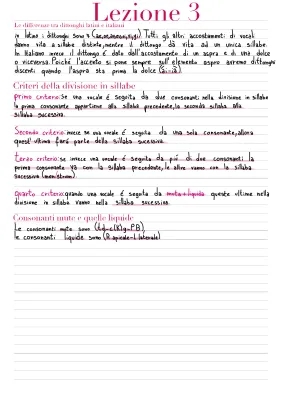 Lezione 3
Le differenze tra dittonghi latini e italiani
in latino i dittonghi sono 5 Tutti gli altri accostamenti di vocali
danno vita a sillabe distinte, mentre il dittongo dà vita ad un unica sillabe.
In Italiano invece il dittongo è dato dall'accostamento di un aspra e di una dolce
o viceversa. Poiché l'accento si pone sempre sull'elemento aspro avremo dittonghi
discenti quando l'aspra sta prima la dolce
Criteri della divisione in sillabe
primo criterio: Se una vocale è seguita da due consonanti nella divisione in sillabe
la prima consonante appartiene alla sillaba precedente, la seconda sillaba alla
sillaba sucessiva.
Secondo criterio: invece se una vocale è seguita da una sola consonante, allora
quest'ultima farà parte della sillaba sucessiva.
terzo criterio: se invece una vocale è seguita da più di due consonanti la
prima consonante va con la sillaba precedente, le altre vanno con la sillaba
sucessiva
quarto criterio: quando una vocale è seguita da muta+liquida queste ultime nella
divisione in sillabe vanno nella sillaba sucessiva.
Consonanti mute e quelle liquide
Le consonanti mute sono
le consonanti liquide sono (R apicale-L laterale)